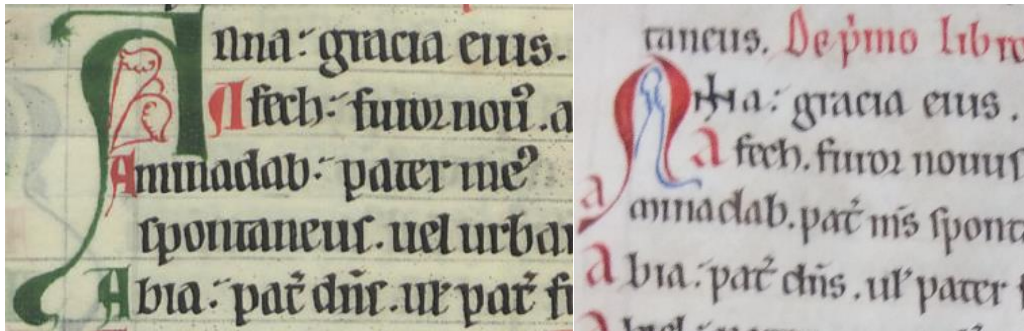 Anna: gracia eius.
Afech: furor nouꝰ. a
Aminadab: pater meꝰ
spontaneus. uel urban
Abia: pat̃ dñs. ul̛ pat̃ fu
taneus. De p̛mo libro
a: gracia eius.
a fech. furor nouus
aminadab. pat̃ m̃s spont
abia: pat̃ dñs. ul̛ pater